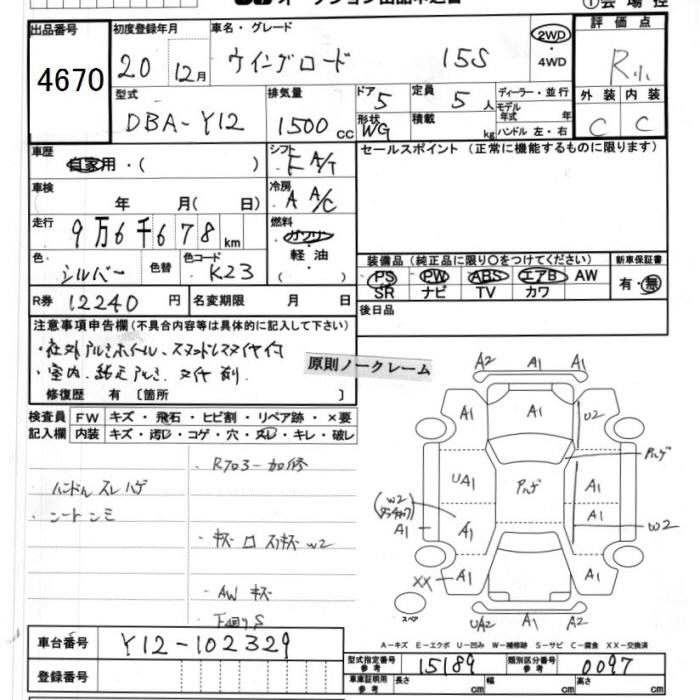 オークション出品申込書
① 会場控
出品番号
4670
初度登録年月
20 12月
車名・グレード
ウイングロード 15S
2WD
・
4WD
評価点
R
外装 内装
C C
型式
DBA-Y12
排気量
1500 cc
ドア 5
形状 WG
定員 5 人
積載 kg
ディーラー・並行
モデル年式 年
ハンドル 左・右
車歴
自家用・( )
シフト
F A/T
セールスポイント (正常に機能するものに限ります)
車検
年 月( 日)
冷房
A A/C
走行
9万6千678 km
燃料
ガソリン
・
軽油
( )
色
シルバー
色替
色コード
K23
装備品 (純正品に限り○をつけてください)
新車保証書
PS PW ABS エアB AW
SR ナビ TV カワ
有・無
R券 12240 円
名変期限 月 日
後日品
注意事項申告欄 (不具合内容等は具体的に記入して下さい)
・社外アルミホイール、スタッドレスタイヤ付
・室内、純正アルミ、タイヤ有り
修復歴 有 [箇所 ]
原則ノークレーム
検査員記入欄
FW キズ・飛石・ヒビ割・リペア跡・×要
内装 キズ・汚レ・コゲ・穴・スレ・キレ・破レ
・ハンドルスレハゲ
・シートシミ
・Rフロアー加修
・AW キズ
A2 A1 A1
A1 A1 U2
アルゲ
UA1 アルゲ A1
W2
A1 A1 A1 W2
XX A1 A1
スペア
UA2 A1 A2
A-キズ E-エクボ U-凹み W-補修跡 S-サビ C-腐食 XX-交換済
車台番号
Y12-102329
登録番号
型式指定番号参考
15189
類別区分番号参考
0097
車庫証明用参考
長さ cm
幅 cm
高さ cm